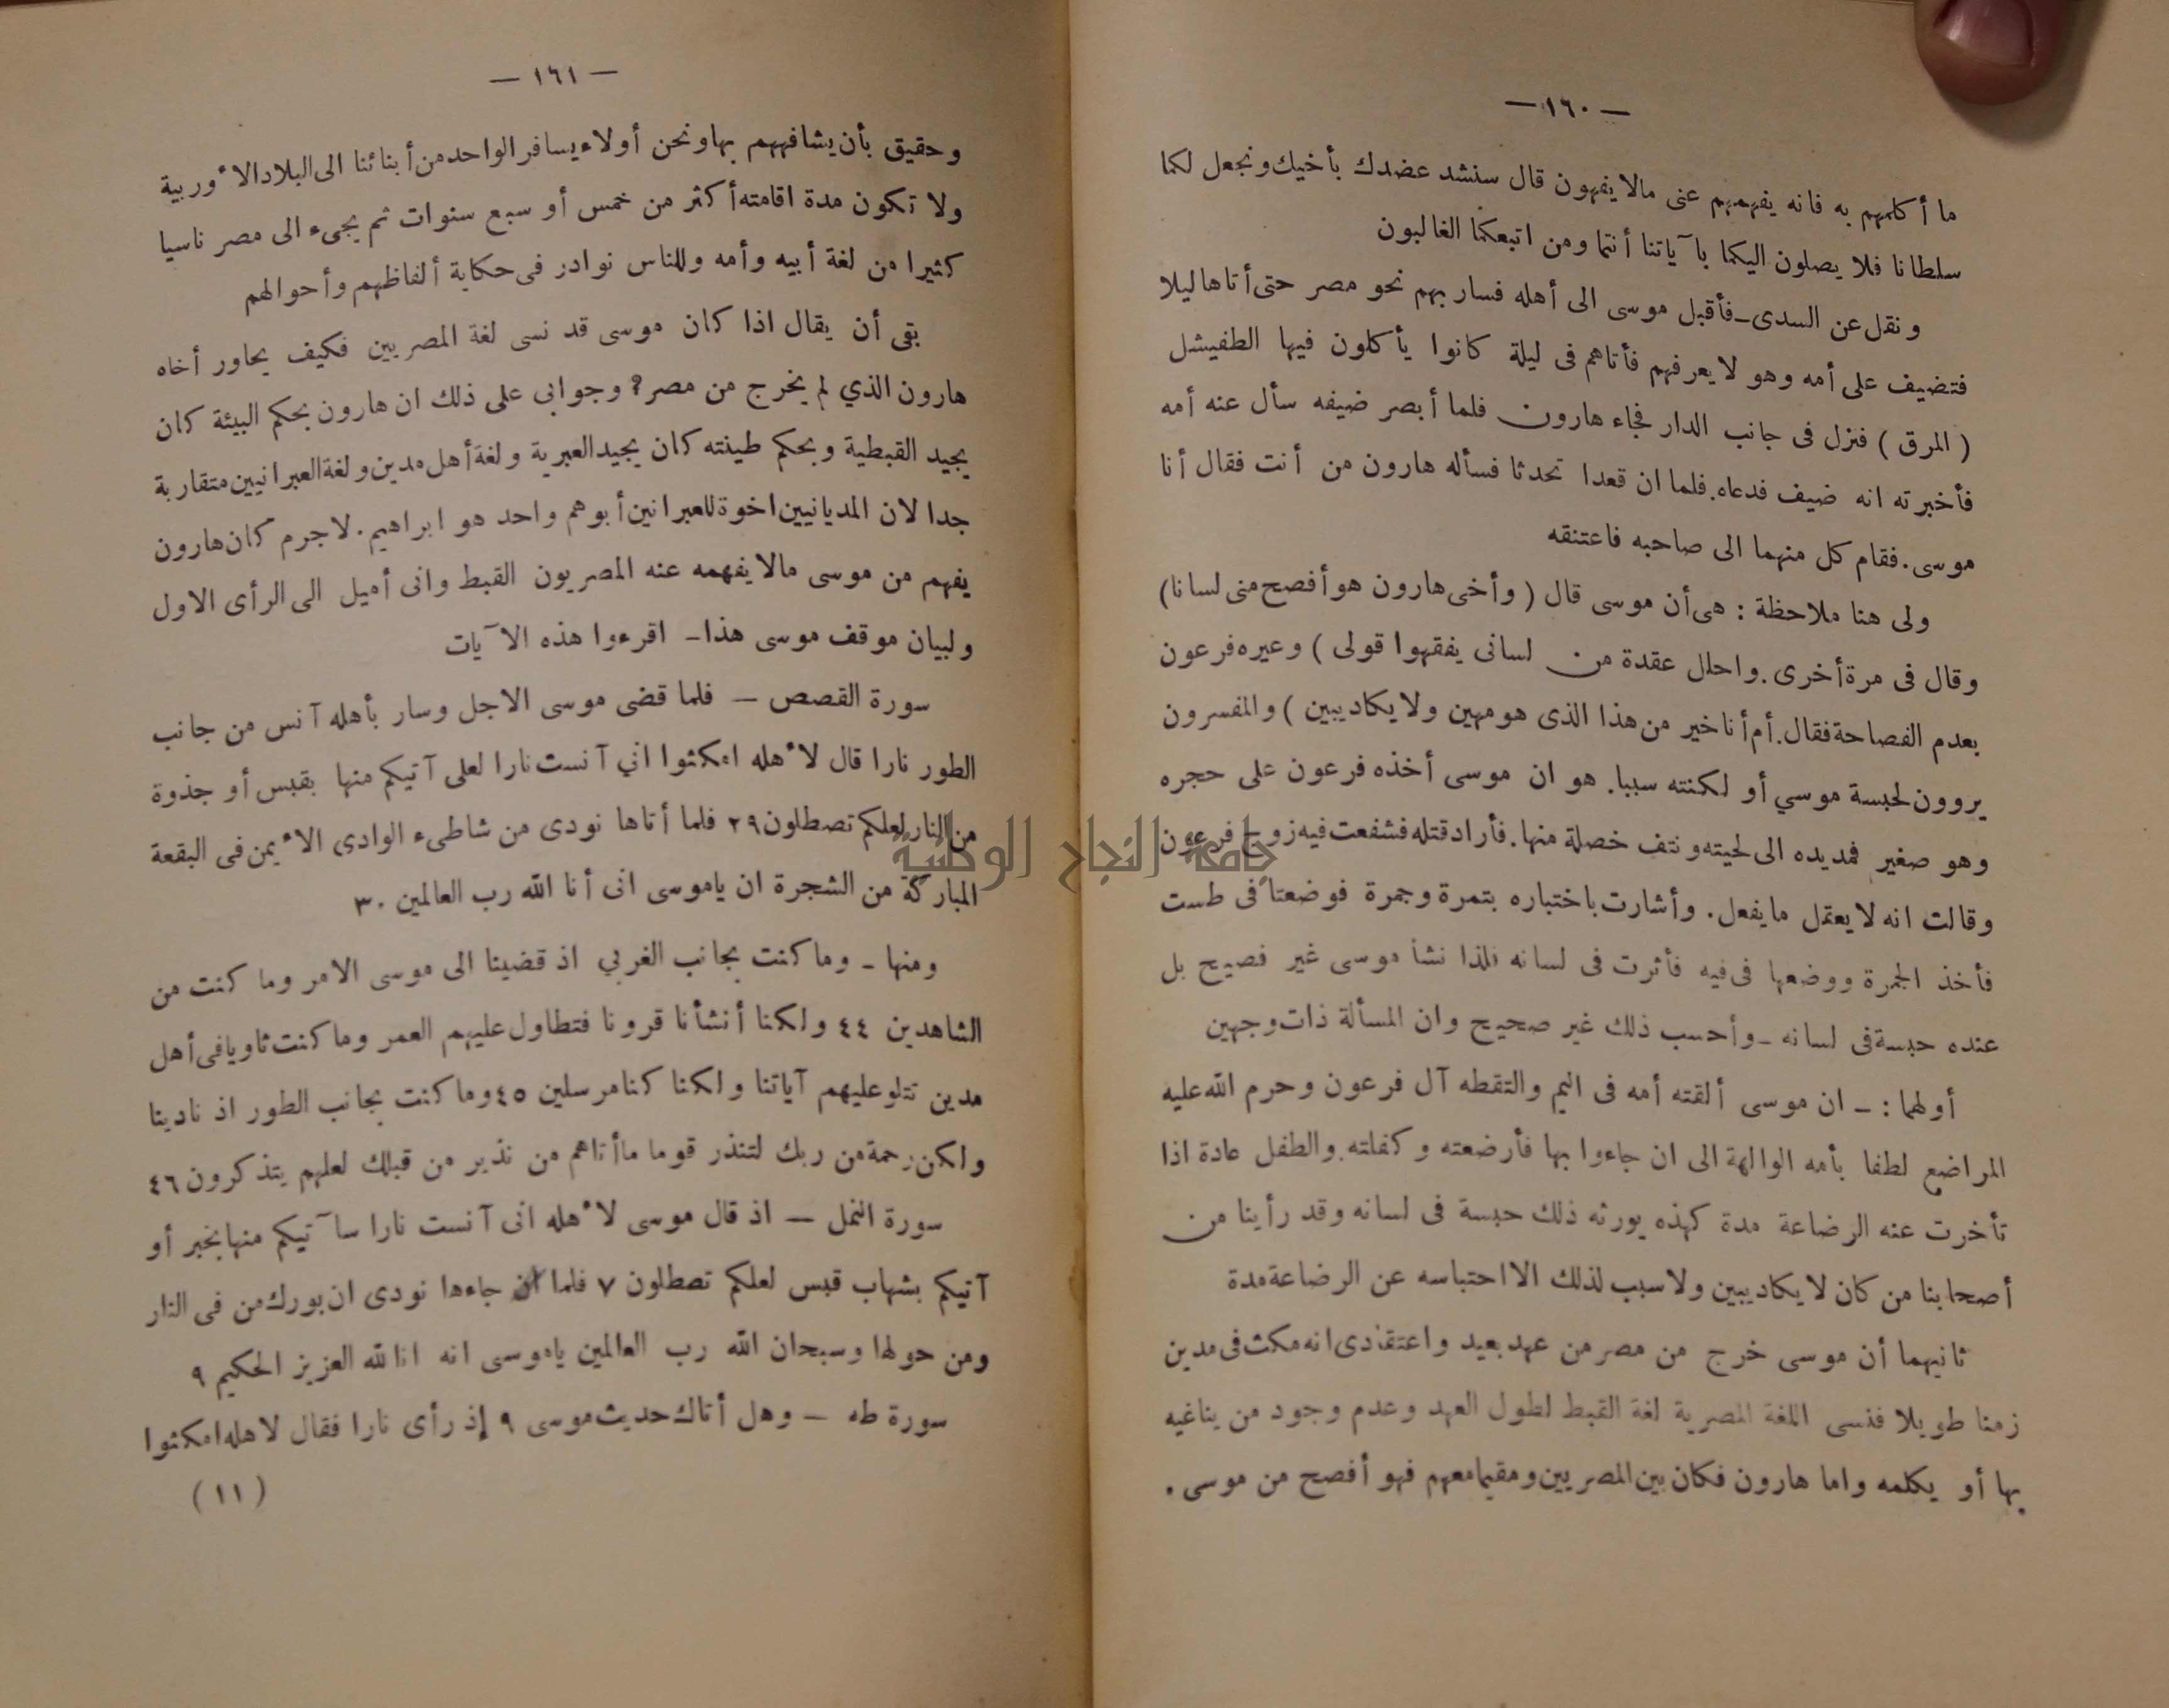 — ١٦٠ —
ما أكلمهم به فانه يفهمهم عنى مالا يفهون قال سنشد عضدك بأخيك ونجعل لكما
سلطانا فلا يصلون اليكما بآياتنا أنتما ومن اتبعكما الغالبون
ونقل عن السدى ـ فأقبل موسى الى أهله فسار بهم نحو مصر حتى أتاها ليلا
فتضيف على أمه وهو لا يعرفهم فأتاهم فى ليلة كانوا يأكلون فيها الطفيشل
( المرق ) فنزل فى جانب الدار فجاء هارون فلما أبصر ضيفه سأل عنه أمه
فأخبرته انه ضيف فدعاه. فلما ان قعدا تحدثا فسأله هارون من أنت فقال أنا
موسى. فقام كل منهما الى صاحبه فاعتنقه
ولى هنا ملاحظة : هى أن موسى قال ( وأخى هارون هو أفصح منى لسانا)
وقال فى مرة أخرى. واحلل عقدة من لسانى يفقهوا قولى ) وعيره فرعون
بعدم الفصاحة فقال. أم أنا خير من هذا الذى هو مهين ولا يكاد يبين ) والمفسرون
يروون لحبسة موسي أو لكنته سببا. هو ان موسى أخذه فرعون على حجره
وهو صغير فمد يده الى لحيته ونتف خصلة منها. فأراد قتله فشفعت فيه زوج فرعون
وقالت انه لا يعقل ما يفعل. وأشارت باختباره بتمرة وجمرة فوضعتا فى طست
فأخذ الجمرة ووضعها فى فيه فأثرت فى لسانه فلذا نشأ موسى غير فصيح بل
عنده حبسة فى لسانه ـ وأحسب ذلك غير صحيح وان المسألة ذات وجهين
أولهما : ـ ان موسى ألقته أمه فى اليم والتقطه آل فرعون وحرم الله عليه
المراضع لطفا بأمه الوالهة الى ان جاءوا بها فأرضعته وكفلته. والطفل عادة اذا
تأخرت عنه الرضاعة مدة كهذه يورثه ذلك حبسة فى لسانه وقد رأينا من
أصحابنا من كان لا يكاد يبين ولا سبب لذلك الا احتباسه عن الرضاعة مدة
ثانيهما أن موسى خرج من مصر من عهد بعيد واعتقادى انه مكث فى مدين
زمنا طويلا فنسى اللغة المصرية لغة القبط لطول العهد وعدم وجود من يناغيه
بها أو يكلمه واما هارون فكان بين المصريين ومقيما معهم فهو أفصح من موسى .
— ١٦١ —
وحقيق بأن يشافههم بها ونحن أولاء يسافر الواحد من أبنائنا الى البلاد الأوربية
ولا تكون مدة اقامته أكثر من خمس أو سبع سنوات ثم يجىء الى مصر ناسيا
كثيرا من لغة أبيه وأمه وللناس نوادر فى حكاية ألفاظهم وأحوالهم
بقى أن يقال اذا كان موسى قد نسى لغة المصريين فكيف يحاور أخاه
هارون الذي لم يخرج من مصر؟ وجوابى على ذلك ان هارون بحكم البيئة كان
يجيد القبطية وبحكم طينته كان يجيد العبرية ولغة أهل مدين ولغة العبرانيين متقاربة
جدا لان المديانيين اخوة للعبرانين أبوهم واحد هو ابراهيم. لا جرم كان هارون
يفهم من موسى مالا يفهمه عنه المصريون القبط وانى أميل الى الرأى الاول
ولبيان موقف موسى هذا ـ اقرءوا هذه الآيات
سورة القصص — فلما قضى موسى الاجل وسار بأهله آنس من جانب
الطور نارا قال لأهله امكثوا اني آنست نارا لعلى آتيكم منها بقبس أو جذوة
من النار لعلكم تصطلون ٢٩ فلما أتاها نودى من شاطىء الوادى الأيمن فى البقعة
المباركة من الشجرة ان ياموسى انى أنا الله رب العالمين ٣٠
ومنها ـ وما كنت بجانب الغربي اذ قضينا الى موسى الامر وما كنت من
الشاهدين ٤٤ ولكنا أنشأنا قرونا فتطاول عليهم العمر وما كنت ثاويا فى أهل
مدين تتلو عليهم آياتنا ولكنا كنا مرسلين ٤٥ وما كنت بجانب الطور اذ نادينا
ولكن رحمة من ربك لتنذر قوما ما أتاهم من نذير من قبلك لعلهم يتذكرون ٤٦
سورة النمل — اذ قال موسى لأهله انى آنست نارا سآتيكم منها بخبر أو
آتيكم بشهاب قبس لعلكم تصطلون ٧ فلما جاءها نودى ان بورك من فى النار
ومن حولها وسبحان الله رب العالمين ياموسى انه انا لله العزيز الحكيم ٩
سورة طه — وهل أتاك حديث موسى ٩ إذ رأى نارا فقال لاهله امكثوا
(١١)
جامعة النجاح الوطنية